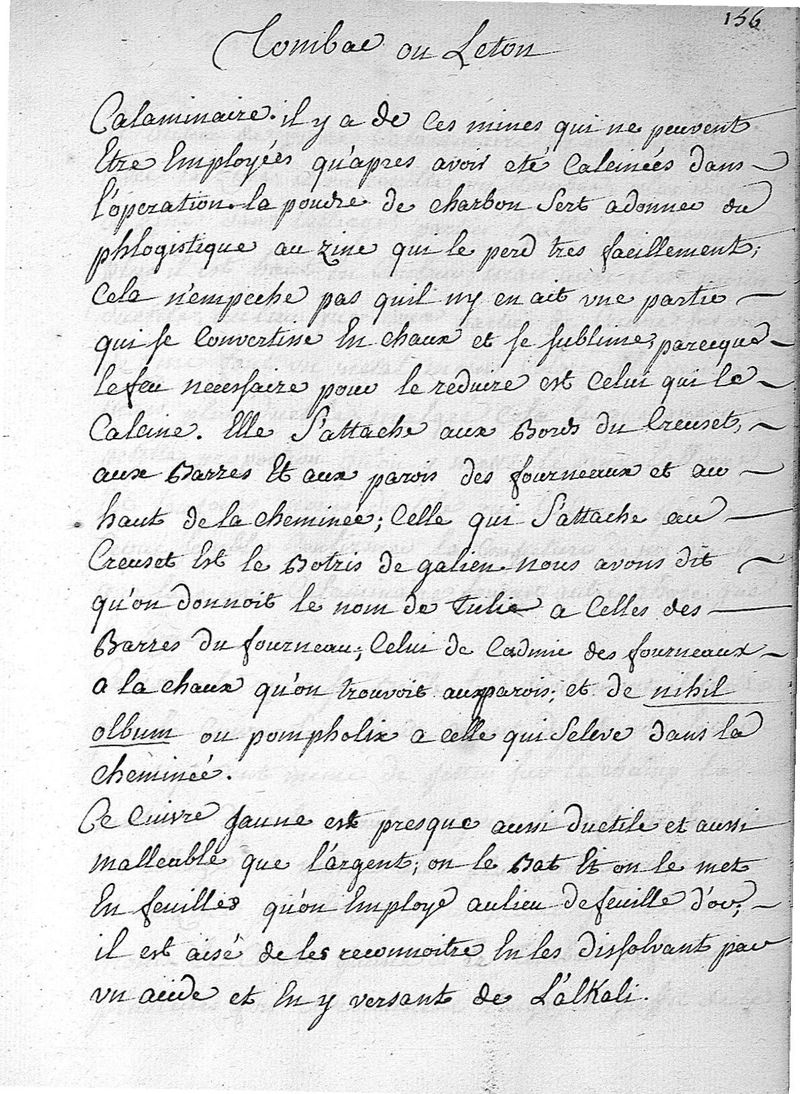 156
Tombac ou Leton
Calaminaire. il y a de ces mines qui ne peuvent
Etre Employées qu'apres avoir eté Calcinées dans
l'operation. la poudre de charbon sert a donner du
phlogistique au zinc qui le perd tres facillement;
Cela n'empeche pas quil ny en ait une partie
qui se Convertisse En chaux et se sublime, parceque
le feu necessaire pour le reduire est Celui qui le
Calcine. Elle s'attache aux Bords du Creuset,
aux Barres Et aux parois des fourneaux et au
haut de la cheminée; Celle qui s'attache au
Creuset Est le Botris de galien. Nous avons dit
qu'on donnoit le nom de Tutie a Celles des
Barres du fourneau; Celui de Cadmie des fourneaux
a la chaux qu'on trouvoit aux parois; et de nihil
album ou pompholix a celle qui seleve dans la
cheminée.
Ce Cuivre Jaune est presque aussi ductile et aussi
malleable que l'argent; on le Bat Et on le met
En feuilles qu'on Employe aulieu de feuille d'or;
il est aisé de les reconnoitre En les dissolvant par
un acide et En y versant de L'alkali.